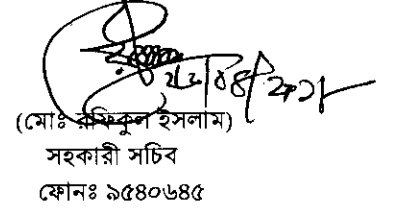 (মোঃ রফিকুল ইসলাম)
সহকারী সচিব
ফোনঃ ৯৫৪০৬৪৫